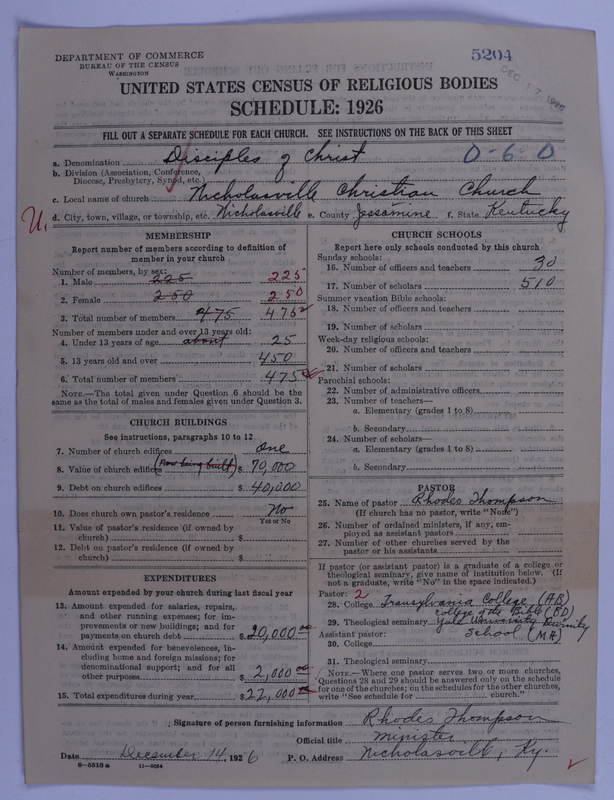 5204
DEC 17 1926
DEPARTMENT OF COMMERCE
BUREAU OF THE CENSUS
WASHINGTON
UNITED STATES CENSUS OF RELIGIOUS BODIES
SCHEDULE: 1926
FILL OUT A SEPARATE SCHEDULE FOR EACH CHURCH. SEE INSTRUCTIONS ON THE BACK OF THIS SHEET
a. Denomination Disciples of Christ 0-6-0
b. Division (Association, Conference,
Diocese, Presbytery, Synod, etc.)
c. Local name of church Nicholasville Christian Church
U. d. City, town, village, or township, etc. Nicholasville e. County Jessamine f. State Kentucky
MEMBERSHIP
Report number of members according to definition of
member in your church
Number of members, by sex:
1. Male 225 225
2. Female 250 250
3. Total number of members 475 475
Number of members under and over 13 years old:
4. Under 13 years of age about 25
5. 13 years old and over 450
6. Total number of members 475
NOTE.—The total given under Question 6 should be
same as the total of males and females given under Question 3.
CHURCH BUILDINGS
See instructions, paragraphs 10 to 12
7. Number of church edifices One
8. Value of church edifices (Now being built) $ 70,000
9. Debt on church edifices $ 40,000
10. Does church own pastor's residence No
Yes or No
11. Value of pastor's residence (if owned by
church) $
12. Debt on pastor's residence (if owned by
church) $
EXPENDITURES
Amount expended by your church during last fiscal year
13. Amount expended for salaries, repairs,
and other running expenses; for im-
provements or new buildings; and for
payments on church debt $ 20,000.00
14. Amount expended for benevolences, in-
cluding home and foreign missions; for
denominational support; and for all
other purposes $ 2,000.00
15. Total expenditures during year $ 22,000
CHURCH SCHOOLS
Report here only schools conducted by this church
Sunday schools:
16. Number of officers and teachers 30
17. Number of scholars 510
Summer vacation Bible schools:
18. Number of officers and teachers
19. Number of scholars
Week-day religious schools:
20. Number of officers and teachers
21. Number of scholars
Parochial schools:
22. Number of administrative officers
23. Number of teachers—
a. Elementary (grades 1 to 8)
b. Secondary
24. Number of scholars—
a. Elementary (grades 1 to 8)
b. Secondary
PASTOR
25. Name of pastor Rhodes Thompson
(If church has no pastor, write "None")
26. Number of ordained ministers, if any, em-
ployed as assistant pastors
27. Number of other churches served by the
pastor or his assistants
If pastor (or assistant pastor) is a graduate of a college or
theological seminary, give name of institution below. (If
not a graduate, write "No" in the space indicated.)
Pastor: 2
28. College Transylvania College (AB)
College of the Bible (BD)
29. Theological seminary Yale University Divinity
Assistant pastor: School (MA)
30. College
31. Theological seminary
NOTE.—Where one pastor serves two or more churches,
Questions 28 and 29 should be answered only on the schedule
for one of the churches; on the schedules for the other churches,
write "See schedule for church."
Signature of person furnishing information Rhodes Thompson
Official title Minister
Date December 14, 1926 P. O. Address Nicholasville, Ky.
8—5518a 11—9084